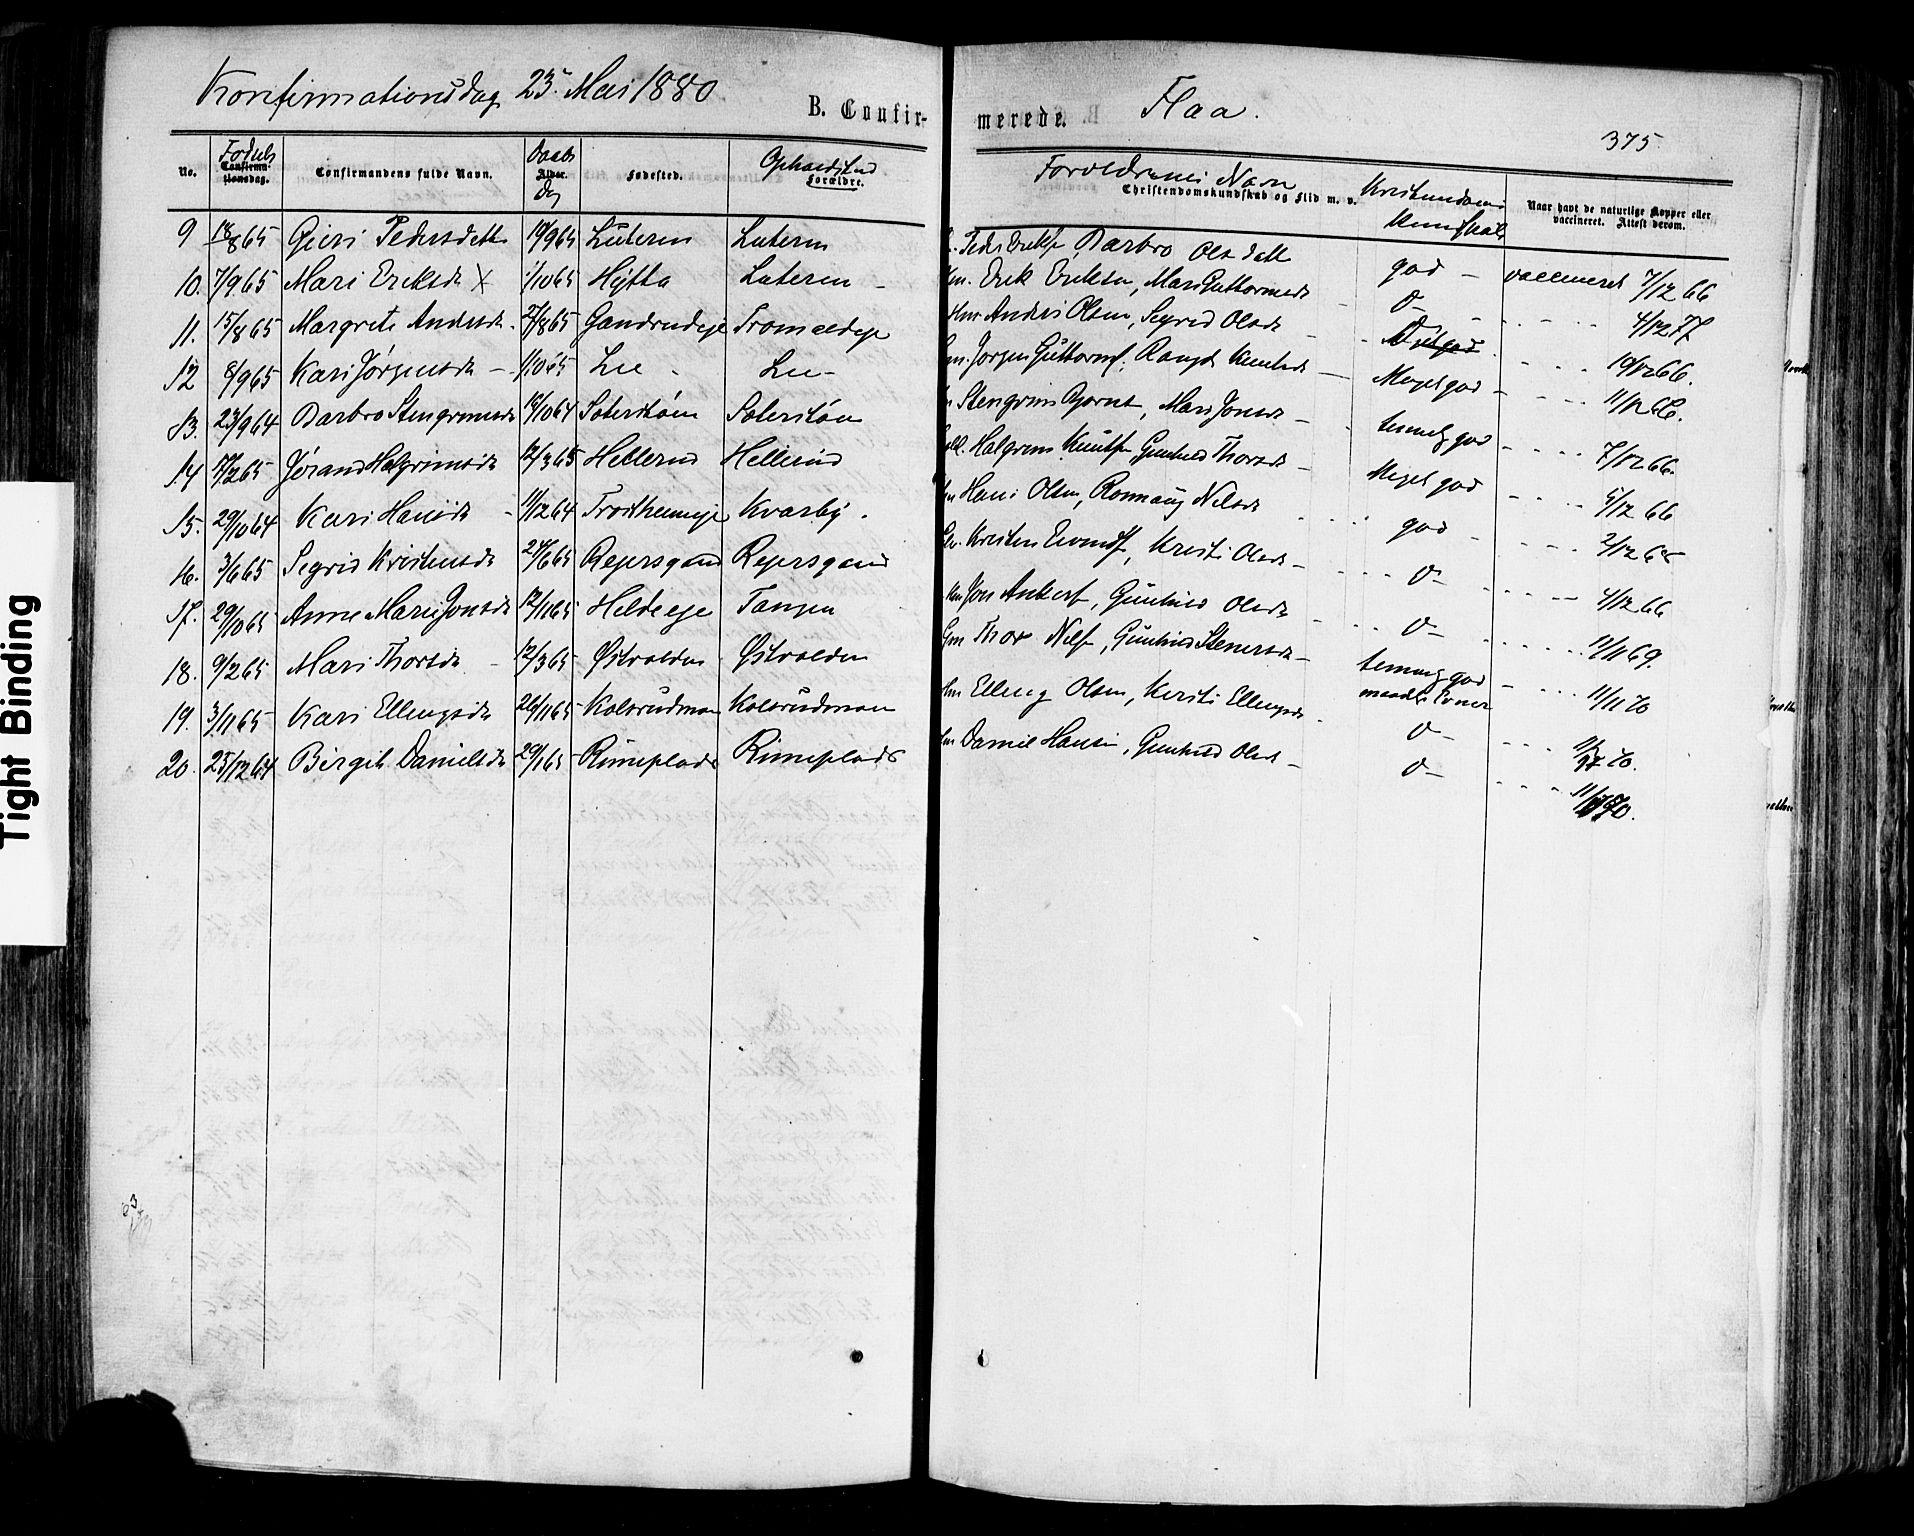 Konfirmationsdag 23. Mai 1880
B. Confirmerede. Flaa.
375
No. Fødsels Confirmationsdag. Confirmandens fulde Navn. Daabs Alder. Dag Fødested. Opholdssted Forældre. Forældrenes Navn Christendomskundskab og Flid m. v. Kristendoms Kundskab Naar havt de naturlige Kopper eller vaccineret. Attest derom.
9 18/8 65 Pedersdtt 17/9 65 Luteren Luteren Peder Eriks, Barbro Olsdatt god - vaccineret 7/12 66
10. 7/9 65 Mari Eriksdr X 1/10 65 Hytta Luteren - Erik Eriksen, Mari Guttormsdr D- 4/12 77
11. 15/8 65 Margrete Andersdr. 27/8 65 Anders Olsen, Segrid Olsdr 19/12 66.
12 8/9 65 Kari Jørgensdr - 1/10 65 Lie - Lie - Jørgen Guttormsf. Knutsdr Meget god - 11/12 66.
13. 23/9 64 Barbro Stengrimsdr 16/10 64 Stengrim Bjørns, Mari Jonsdr - temmelig god 7/12 66.
14 17/2 65 Jørand Halgrimsdr 12/3 65 Hellerud Hellerud Halgrim Knuts, Gunhild Thorsdr - Meget god 5/12 66
15. 29/10 64 Kari Hansdr - 11/12 64 Kvarby. Hans Olsen, Ronnaug Nelsdr god 2/12 65
16. 3/6 65 Segrid Kristensdr 24/6 65 Rejersgaard Rejersgaard Kristen Evends, Kristi Olsdr - D- 4/12 66
17. 29/10 65 Anne Marie Jonsdr 12/11 65 Helde eje Tangen Jon Ankers, Gunhild Olsdr D- 11/11 69.
18. 9/2 65 Mari Thorsdr - 12/3 65 Østvolden Østvolden Gm Thor Nels, Gunhild Stenersdr - temmelig god maadel. Evner 11/11 70
19. 3/11 65 Kari Ellingsdr 26/11 65 Kolsrudmoen Kolsrudmoen Elling Olsen, Kirsti Ellingsdr - D- 70.
20. 25/12 64 Birgit Danielsdr 29/1 65 Rimeplads Rimeplads Daniel Hansen, Gunhild Olsd - D- 70.
Tight Binding